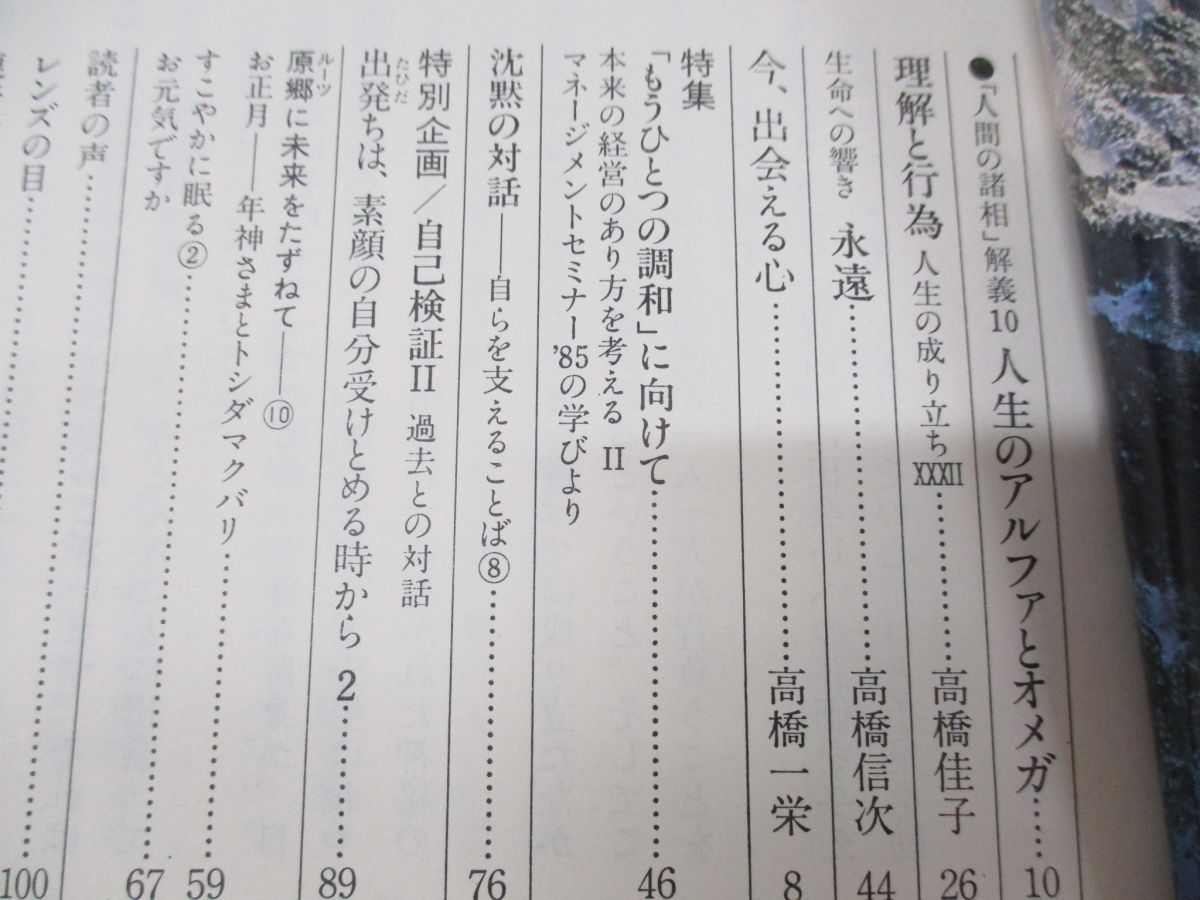 ●「人間の諸相」解義10 人生のアルファとオメガ……10
理解と行為 人生の成り立ちXXXII……高橋佳子 26
生命への響き 永遠……高橋信次 44
今、出会える心……高橋一栄 8
特集
「もうひとつの調和」に向けて……46
本来の経営のあり方を考える II
マネージメントセミナー'85の学びより
沈黙の対話――自らを支えることば⑧……76
特別企画／自己検証II 過去との対話
出発ちは、素顔の自分受けとめる時から 2……89
たびだ
原郷に未来をたずねて――⑩
ルーツ
お正月――年神さまとトシダマクバリ……59
すこやかに眠る②……67
お元気ですか
読者の声……
レンズの目……100